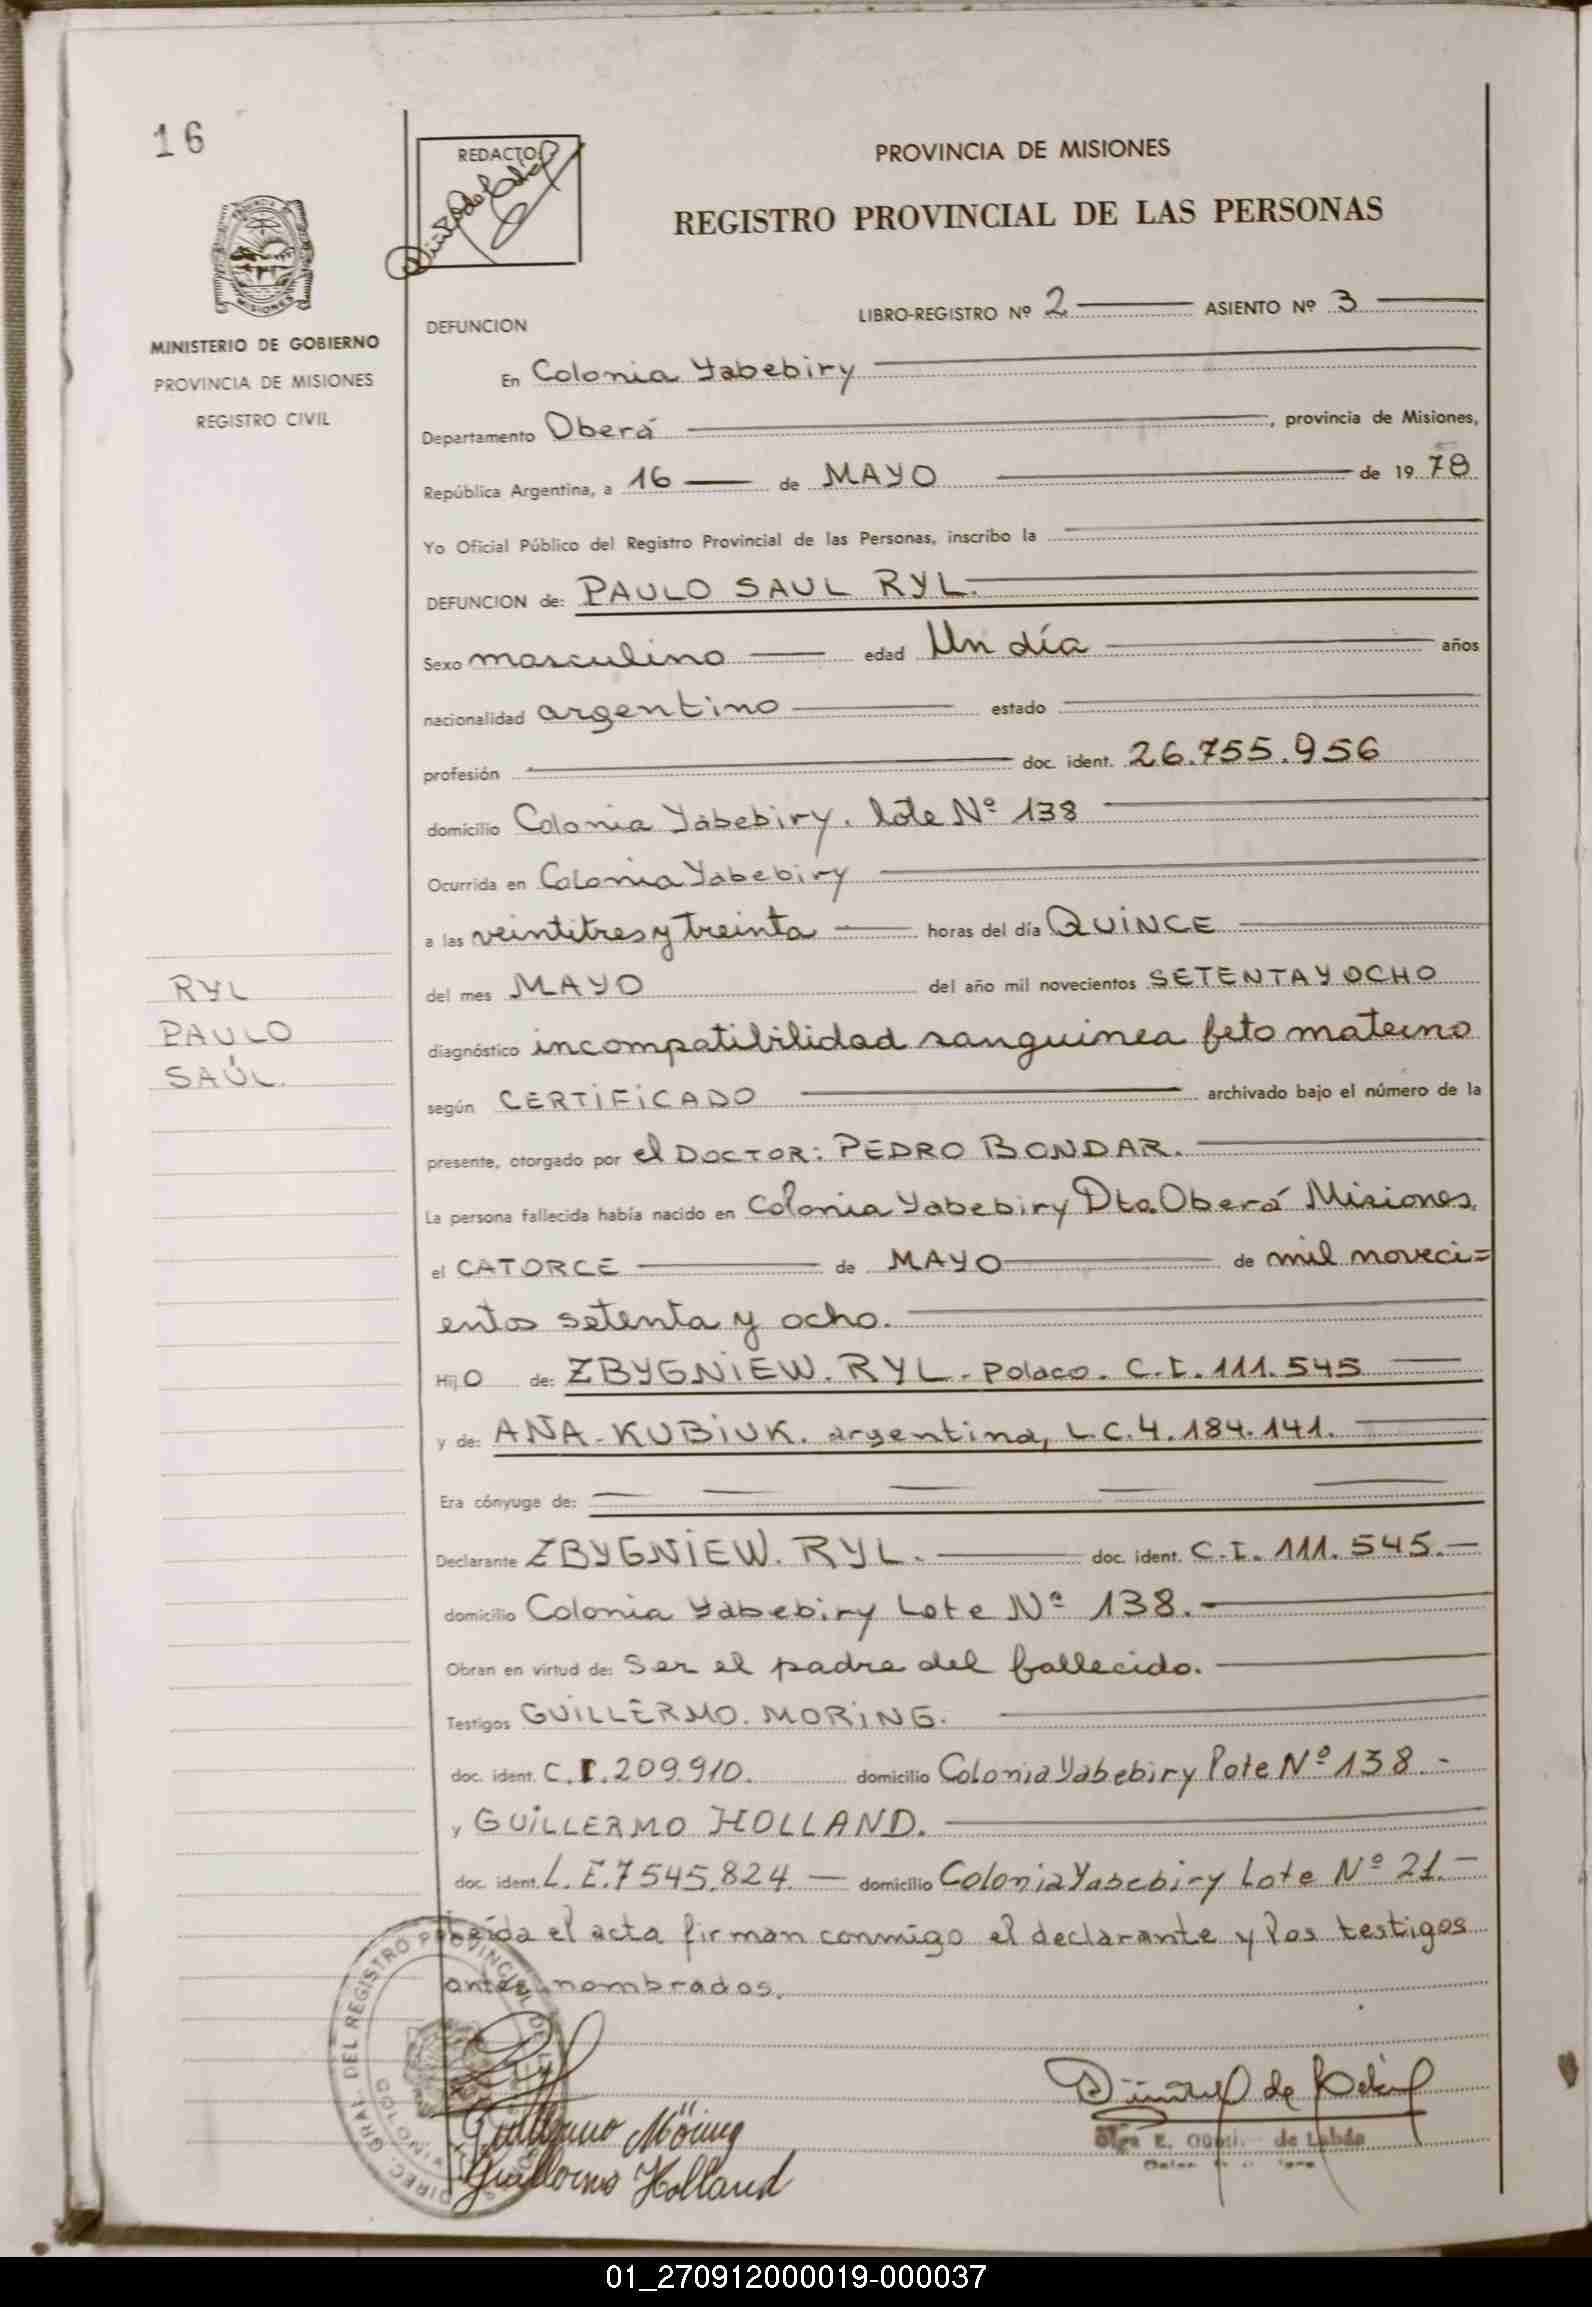 16
REDACTOR
PROVINCIA DE MISIONES
REGISTRO PROVINCIAL DE LAS PERSONAS
MINISTERIO DE GOBIERNO
PROVINCIA DE MISIONES
REGISTRO CIVIL
LIBRO-REGISTRO Nº 2 ASIENTO Nº 3
DEFUNCION
En Colonia Yabebiry
Departamento Oberá , provincia de Misiones,
República Argentina, a 16 de MAYO de 19 78
Yo Oficial Público del Registro Provincial de las Personas, inscribo la
DEFUNCION de: PAULO SAUL RYL.
Sexo masculino edad Un día años
nacionalidad argentino estado
profesión doc. ident. 26.755.956
domicilio Colonia Yabebiry. lote Nº 138
Ocurrida en Colonia Yabebiry
a las veintitres y treinta horas del día QUINCE
del mes MAYO del año mil novecientos SETENTA Y OCHO
RYL
PAULO
SAÚL.
diagnóstico incompatibilidad sanguinea feto materno
según CERTIFICADO archivado bajo el número de la
presente, otorgado por el DOCTOR: PEDRO BONDAR.
La persona fallecida había nacido en Colonia Yabebiry Dto. Oberá Misiones.
el CATORCE de MAYO de mil noveci=
entos setenta y ocho.
Hij O de: ZBYGNIEW. RYL. Polaco. C.I. 111.545
y de: AÑA. KUBIUK. argentina, L.C. 4.184.141.
Era cónyuge de:
Declarante ZBYGNIEW. RYL. doc. ident. C.I. 111.545.
domicilio Colonia Yabebiry Lote Nº 138.
Obran en virtud de: Ser el padre del fallecido.
Testigos GUILLERMO. MORING.
doc. ident. C.I. 209.910. domicilio Colonia Yabebiry lote Nº 138.
y GUILLERMO HOLLAND.
doc. ident. L.E. 7545.824. domicilio Colonia Yabebiry Lote Nº 21.
Leída el acta firman conmigo el declarante y los testigos
antes nombrados.
DIREC. GRAL. DEL REGISTRO PROVINCIAL DE
Guillermo Möring
Guillermo Holland
de Labda
01_270912000019-000037